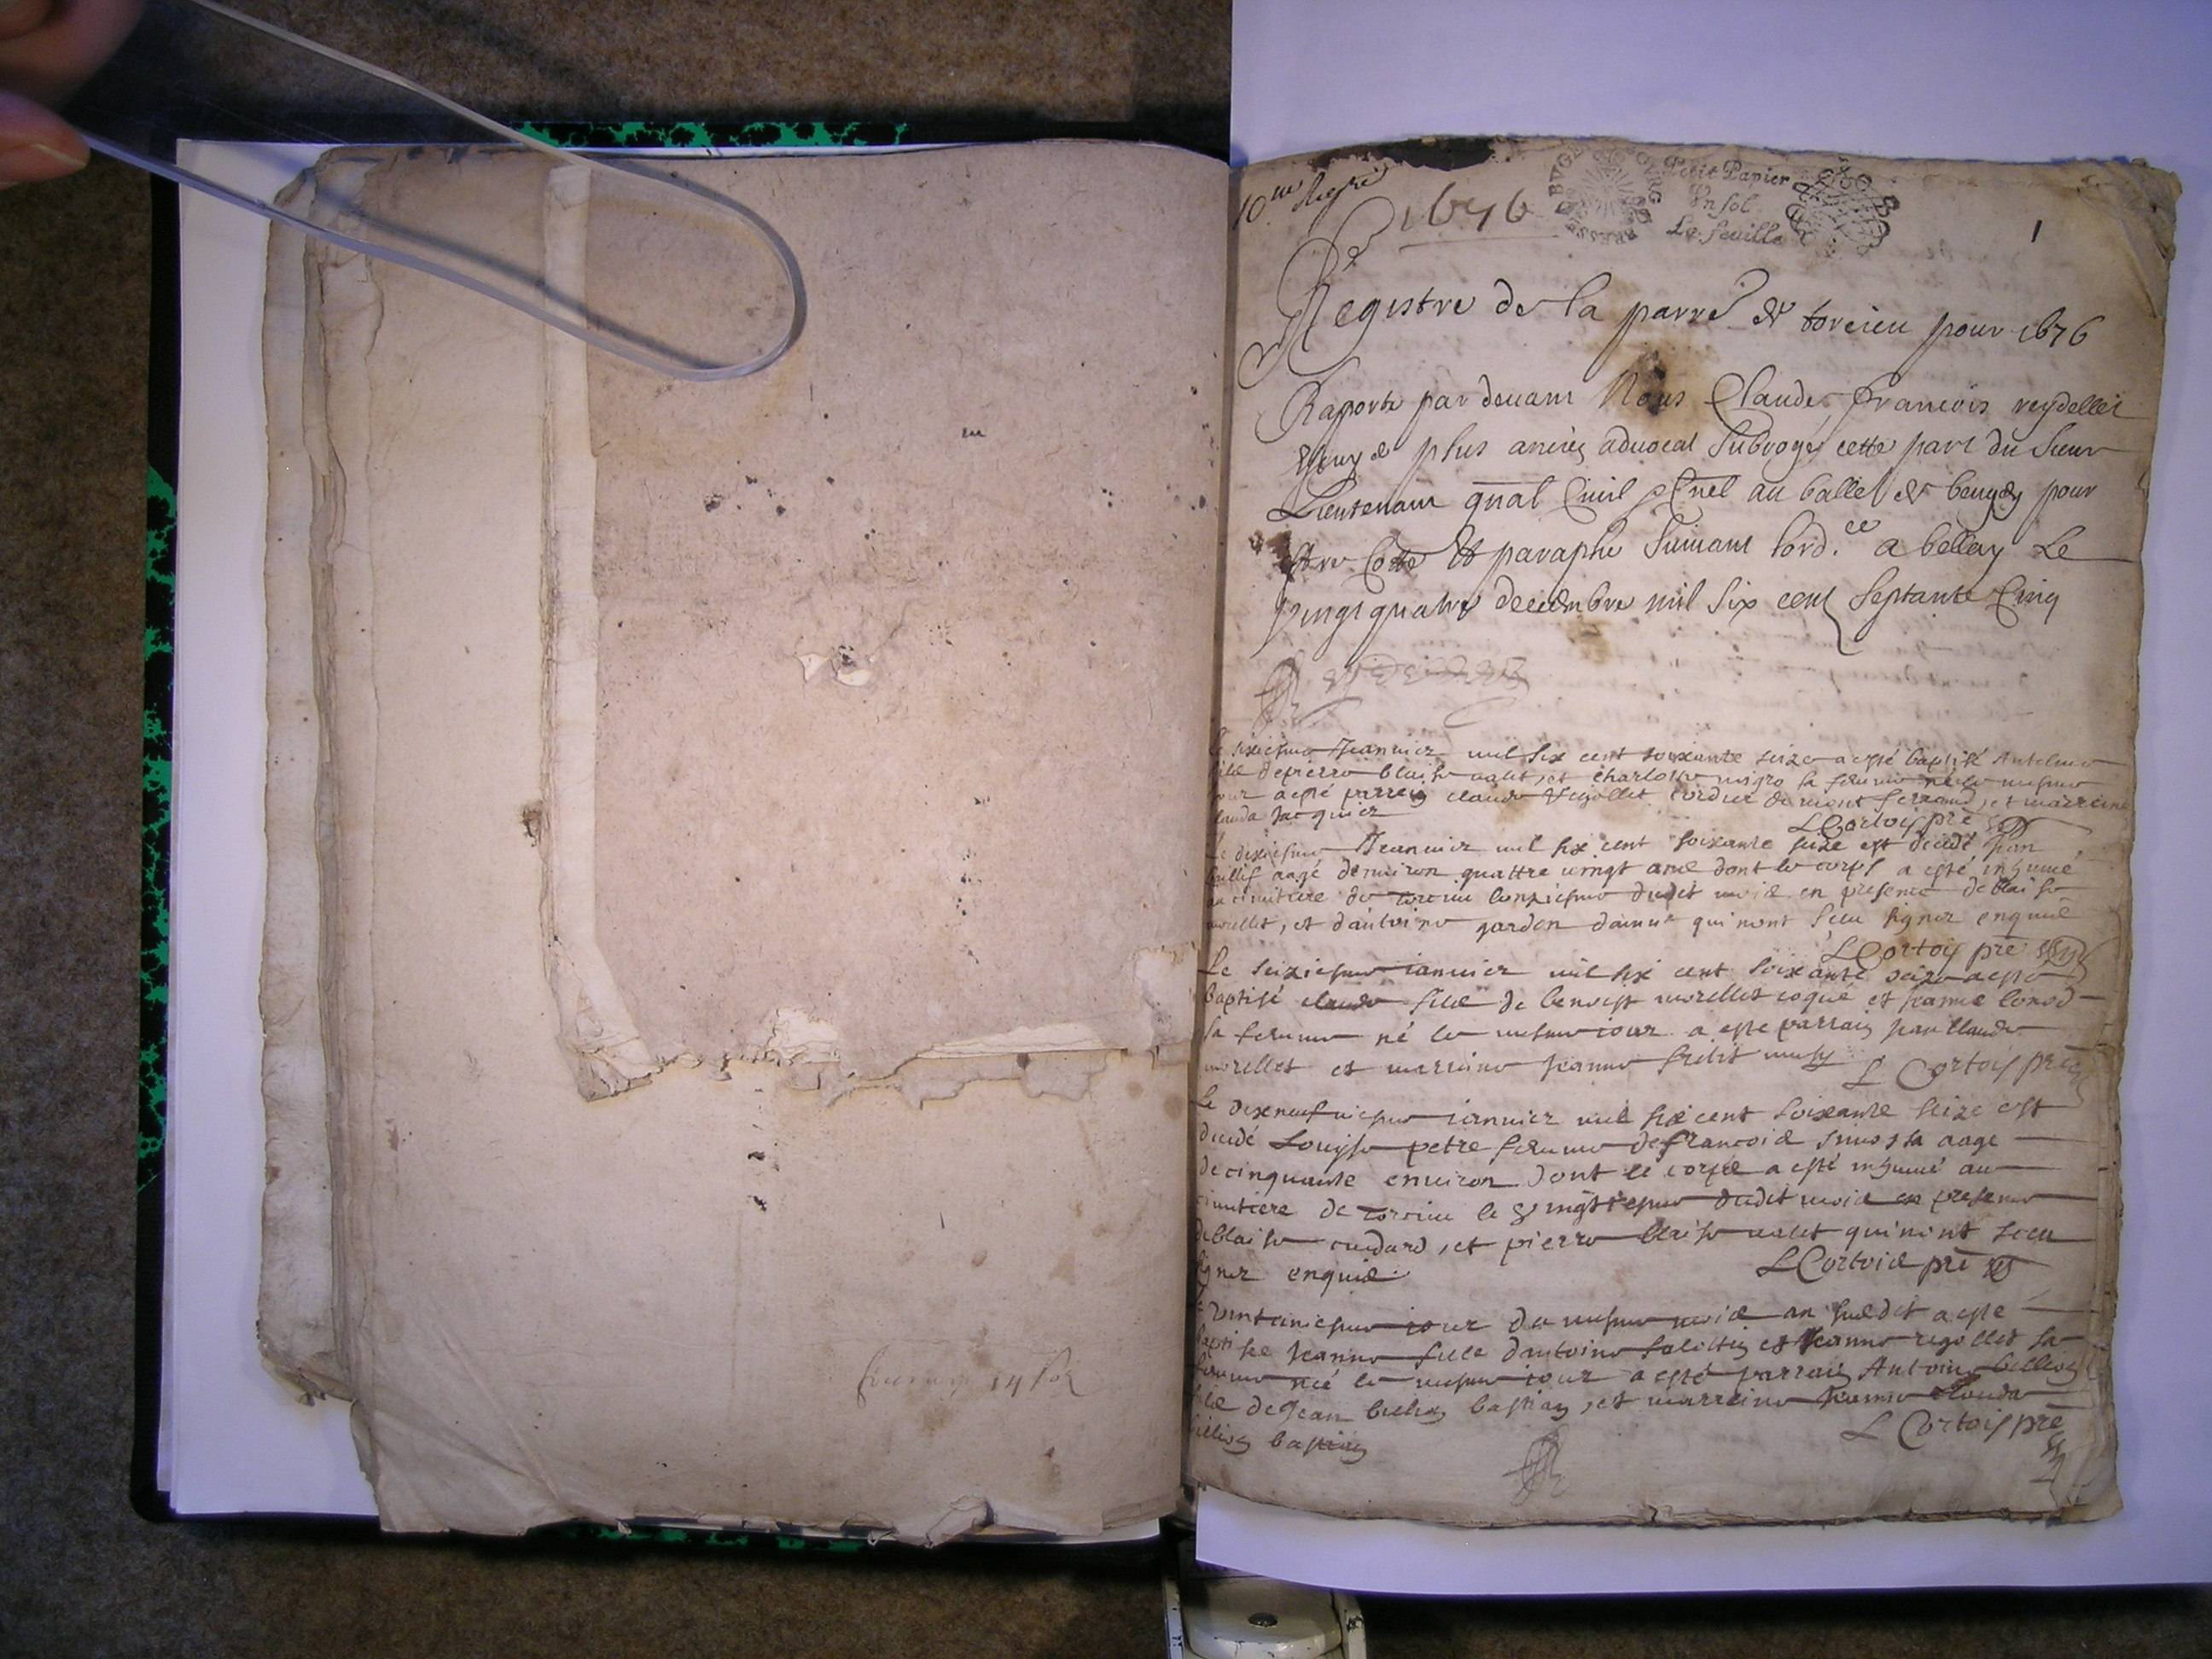 10me Regre
1676
Petit Papier
Un sol
La feuille
1
Registre de la parre de torcieu pour 1676
Raporte par devant Nous Claude, francois reydellet
plus ancien advocat subrogé cette part du sieur
Lieutenant gnal Civil Cnel au balle de beugey pour
estre Cotte & paraphe suivant lord.ce a bellay Le
vingt quatre decembre mil six cent septante Cinq
Le sixiesme Jeanvier mil six cent soixante seize a esté baptisé Antelme
filz de pierre blaise valet, et charlotte migro sa femme né le mesme
jour a esté parrein claude Vegollet cordier de mont ferrand, et marreine
clauda Jacquier
L Cortois pre
Le dixiesme Jeanvier mil six cent soixante seize est decedé Jean
aagé denviron quattre vingt ans dont le corps a esté inhumé
au cimitiere de torcieu lonziesme dudit mois en presence de blaise
morellet, et dantoine gardon qui nont sceu signer enquis
L Cortois pre
Le seiziesme ianvier mil six cent soixante seize a esté
baptisé claude filz de benoist morellet coqué et Jeanne bonod
sa femme né le mesme iour a esté parrain Jean claude
morellet et marreine Jeanne
L Cortois pre
Le dixneufviesme ianvier mil six cent soixante seize est
decedé Louyse petre femme de francois aage
de cinquante environ dont le corps a esté inhumé au
cimitiere de torcieu le vingtiesme dudit mois en presence
de blaise cuidard, et pierre blaise valet qui nont sceu
signer enquis
L Cortois pre
Le vintuniesme iour du mesme mois an susdit a esté
baptisee Jeanne fille dantoine et Jeanne regollet sa
femme née le mesme iour a esté parrain Antoine billion
filz de Jean billion bastian, et marreine Jeanne clauda
billion bastian
L Cortois pre